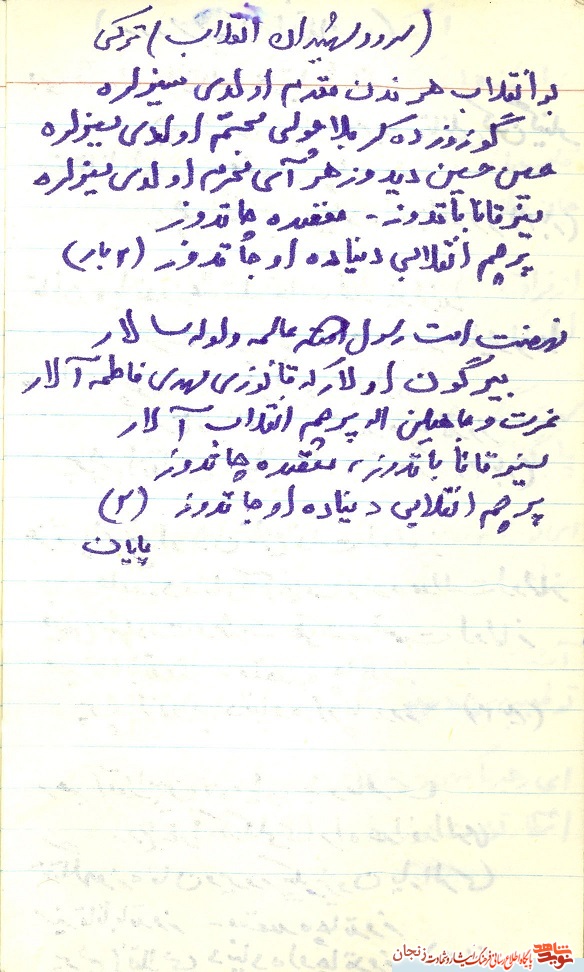 (سرود شهیدان انقلاب) ترکی
بو انقلاب هر ندن مقدم اولدی سیزلره
گوزوزده کربلا چولی مجسم اولدی سیزلره
حسین حسین دیدوز هر آی محرم اولدی سیزلره
سیز قانا باتدوز - مقصده چاتدوز
پرچم انقلابی دنیاده اوجاتدوز (۲ بار)
نهضت امت رسول الله عالمه ولوله سالار
بیرگون اولارکه قانوزی مهدی فاطمه آلار
عزت و جاهیلن اله پرچم انقلاب آلار
سیز قانا باتدوز، مقصده چاتدوز
پرچم انقلابی دنیاده اوجاتدوز (۲)
پایان
نوید شاهد
پایگاه اطلاع رسانی فرهنگ ایثار و شهادت زنجان